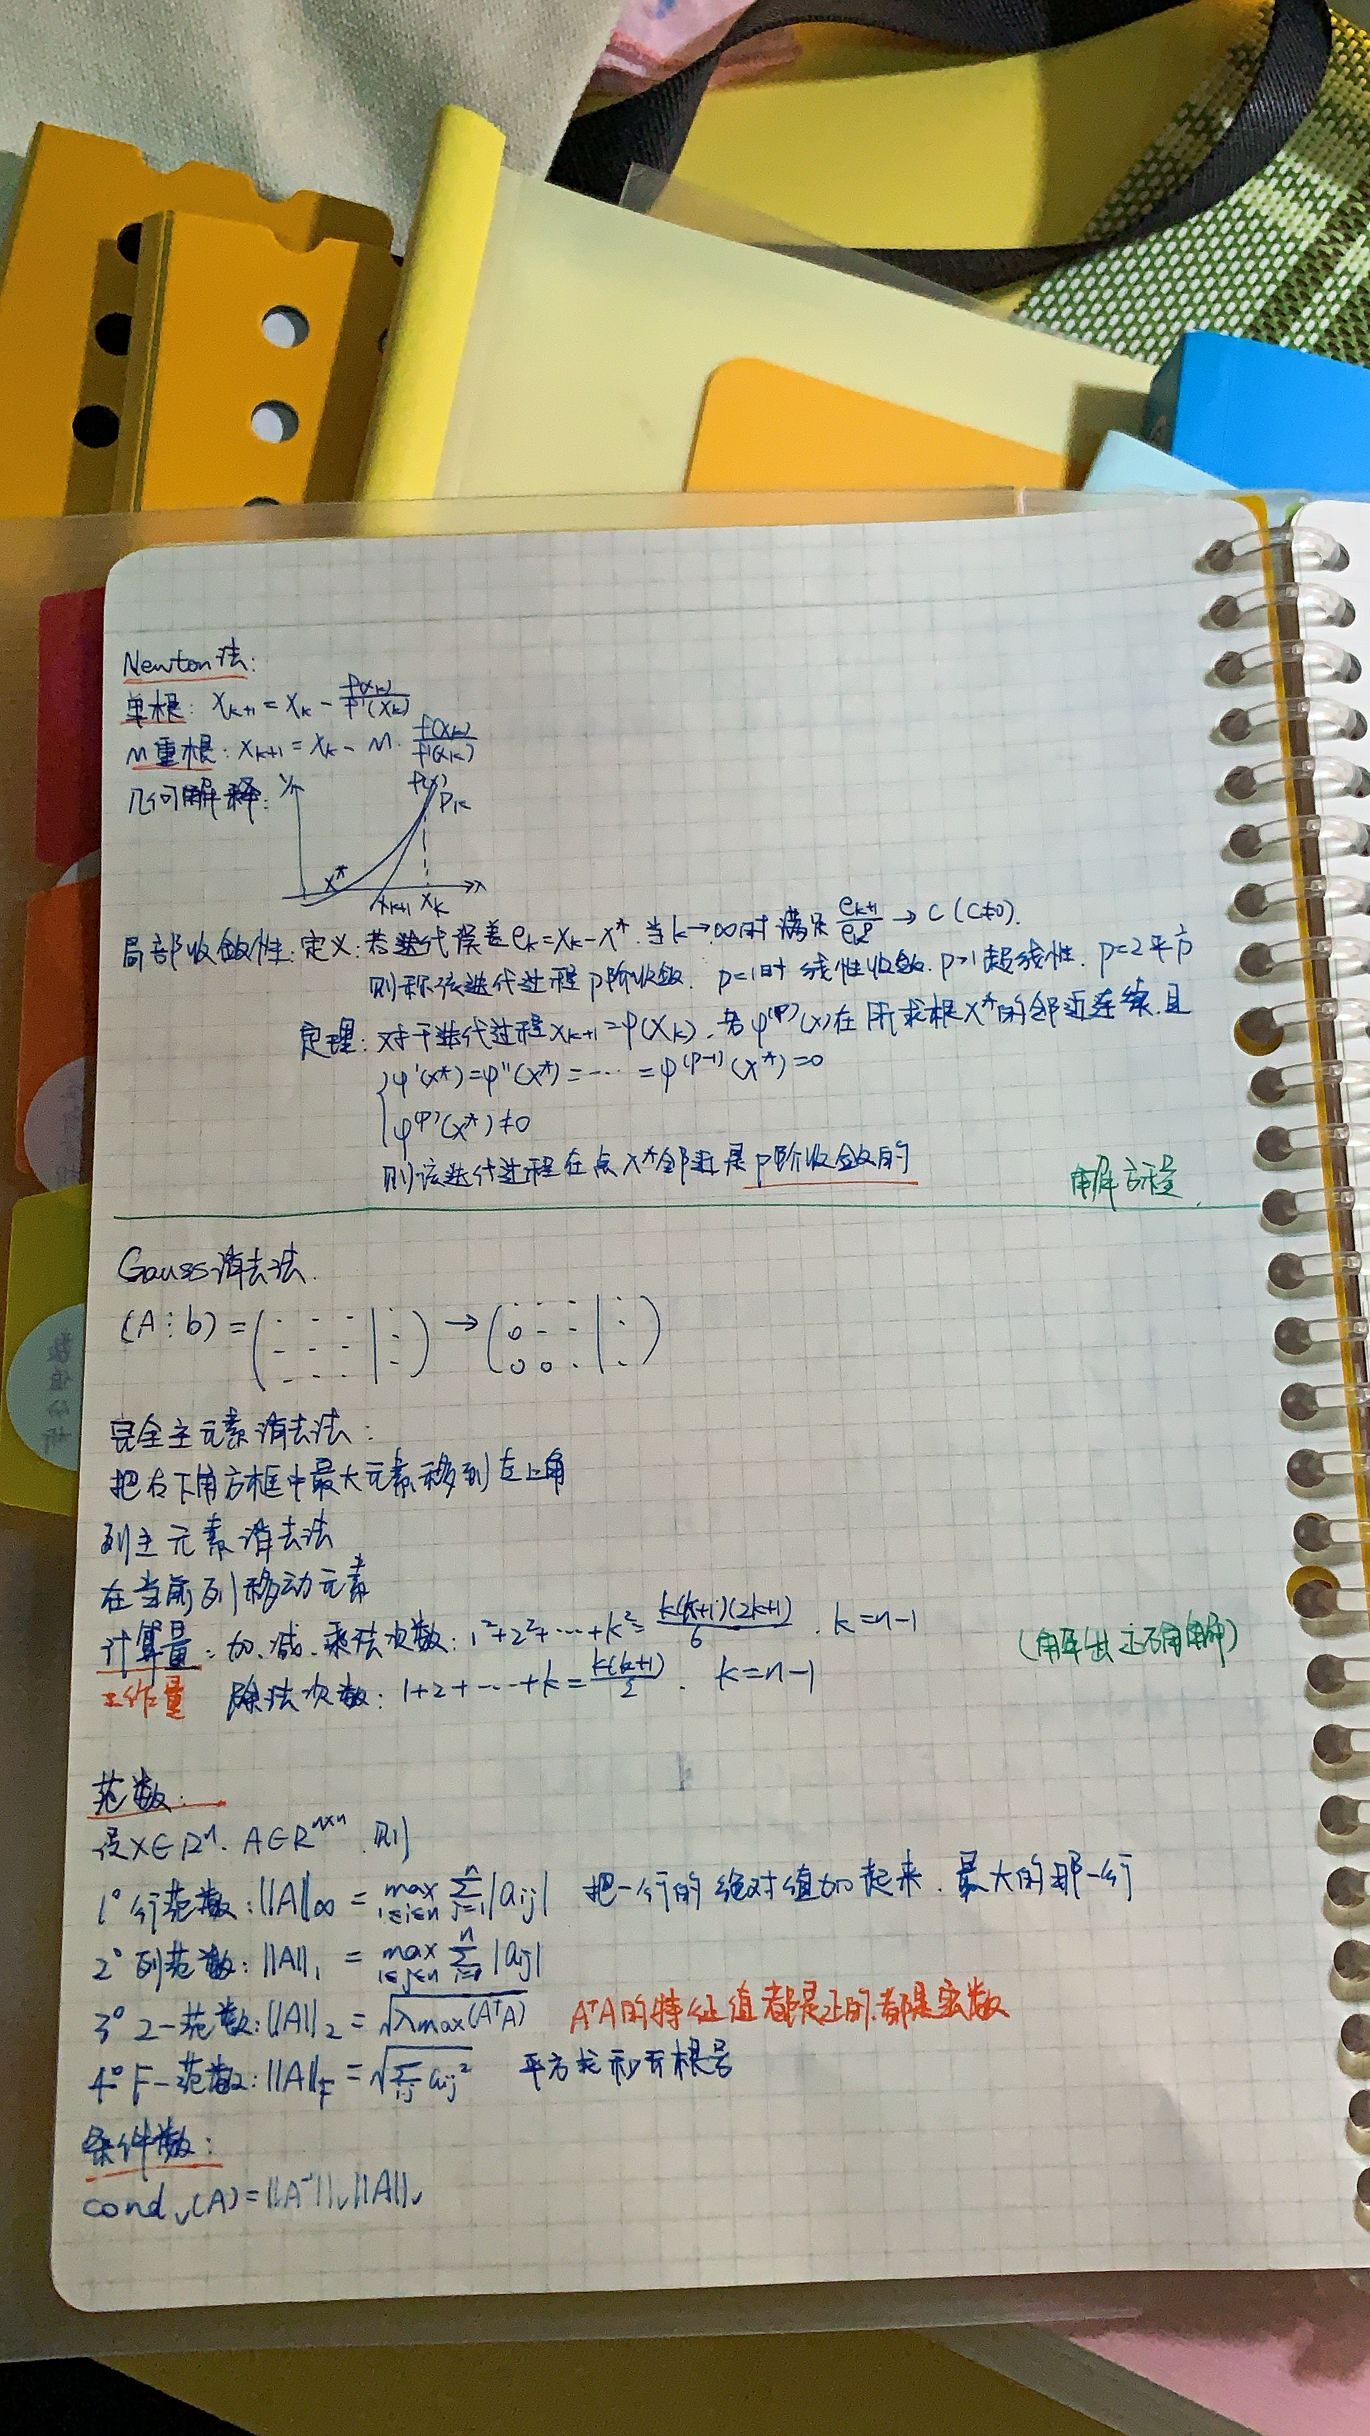 Newton法:
单根: x_{k+1} = x_k - f(x_k)/f'(x_k)
m重根: x_{k+1} = x_k - m · f(x_k)/f'(x_k)
几何解释:
y
f(x)
P_k
x*
x_{k+1} x_k
x
局部收敛性: 定义: 若迭代误差 e_k = x_k - x*. 当 k→∞时 满足 e_{k+1}/e_k^p → C (C≠0).
则称该迭代过程 p阶收敛. p=1时 线性收敛. p>1超线性. p=2平方
定理: 对于迭代过程 x_{k+1} = φ(x_k), 若 φ^{(p)}(x)在所求根x*的邻近连续.且
{ φ'(x*) = φ''(x*) = ··· = φ^{(p-1)}(x*) = 0
φ^{(p)}(x*) ≠ 0
则该迭代过程在点 x*邻近是 p阶收敛的
解方程
Gauss消去法.
(A⋮b) = ( | ) → ( 0 0 0 | )
完全主元素消去法:
把右下角方框中最大元素移到左上角
列主元素消去法
在当前列移动元素
计算量: 加、减、乘法次数: 1²+2²+···+k² = k(k+1)(2k+1)/6 . k=n-1
(解出正确解)
工作量 除法次数: 1+2+···+k = k(k+1)/2 . k=n-1
范数:
设x∈R^n. A∈R^{n×n} 则
1° 行范数: ||A||_∞ = max_{1≤i≤n} Σ_{j=1}^n |a_{ij}| 把一行的绝对值加起来. 最大的那一行
2° 列范数: ||A||_1 = max_{1≤j≤n} Σ_{i=1}^n |a_{ij}|
3° 2-范数: ||A||_2 = √λmax(AᵀA) AᵀA的特征值都是正的.都是实数
4° F-范数: ||A||_F = √Σ_{ij} a_{ij}² 平方求和开根号
条件数:
cond_v(A) = ||A⁻¹||_v ||A||_v
数值分析